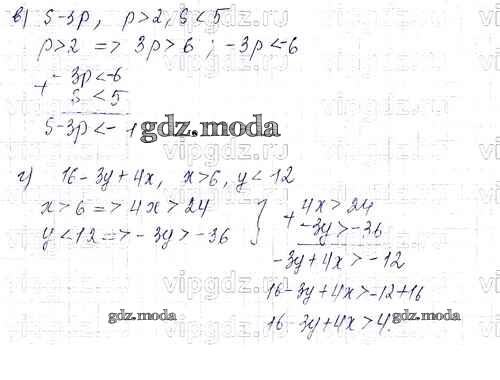 в) S-3p, p>2, S<5
p>2 => 3p>6 ; -3p<-6
+ -3p<-6
S<5
S-3p<-1
gdz.moda
г) 16-3y+4x, x>6, y<12
x>6 => 4x>24
y<12 => -3y>-36
}
+ 4x>24
-3y>-36
-3y+4x>-12
16-3y+4x>-12+16
16-3y+4x>4.
gdz.moda
gdz.moda
vipgdz.ru
vipgdz.ru
vipgdz.ru